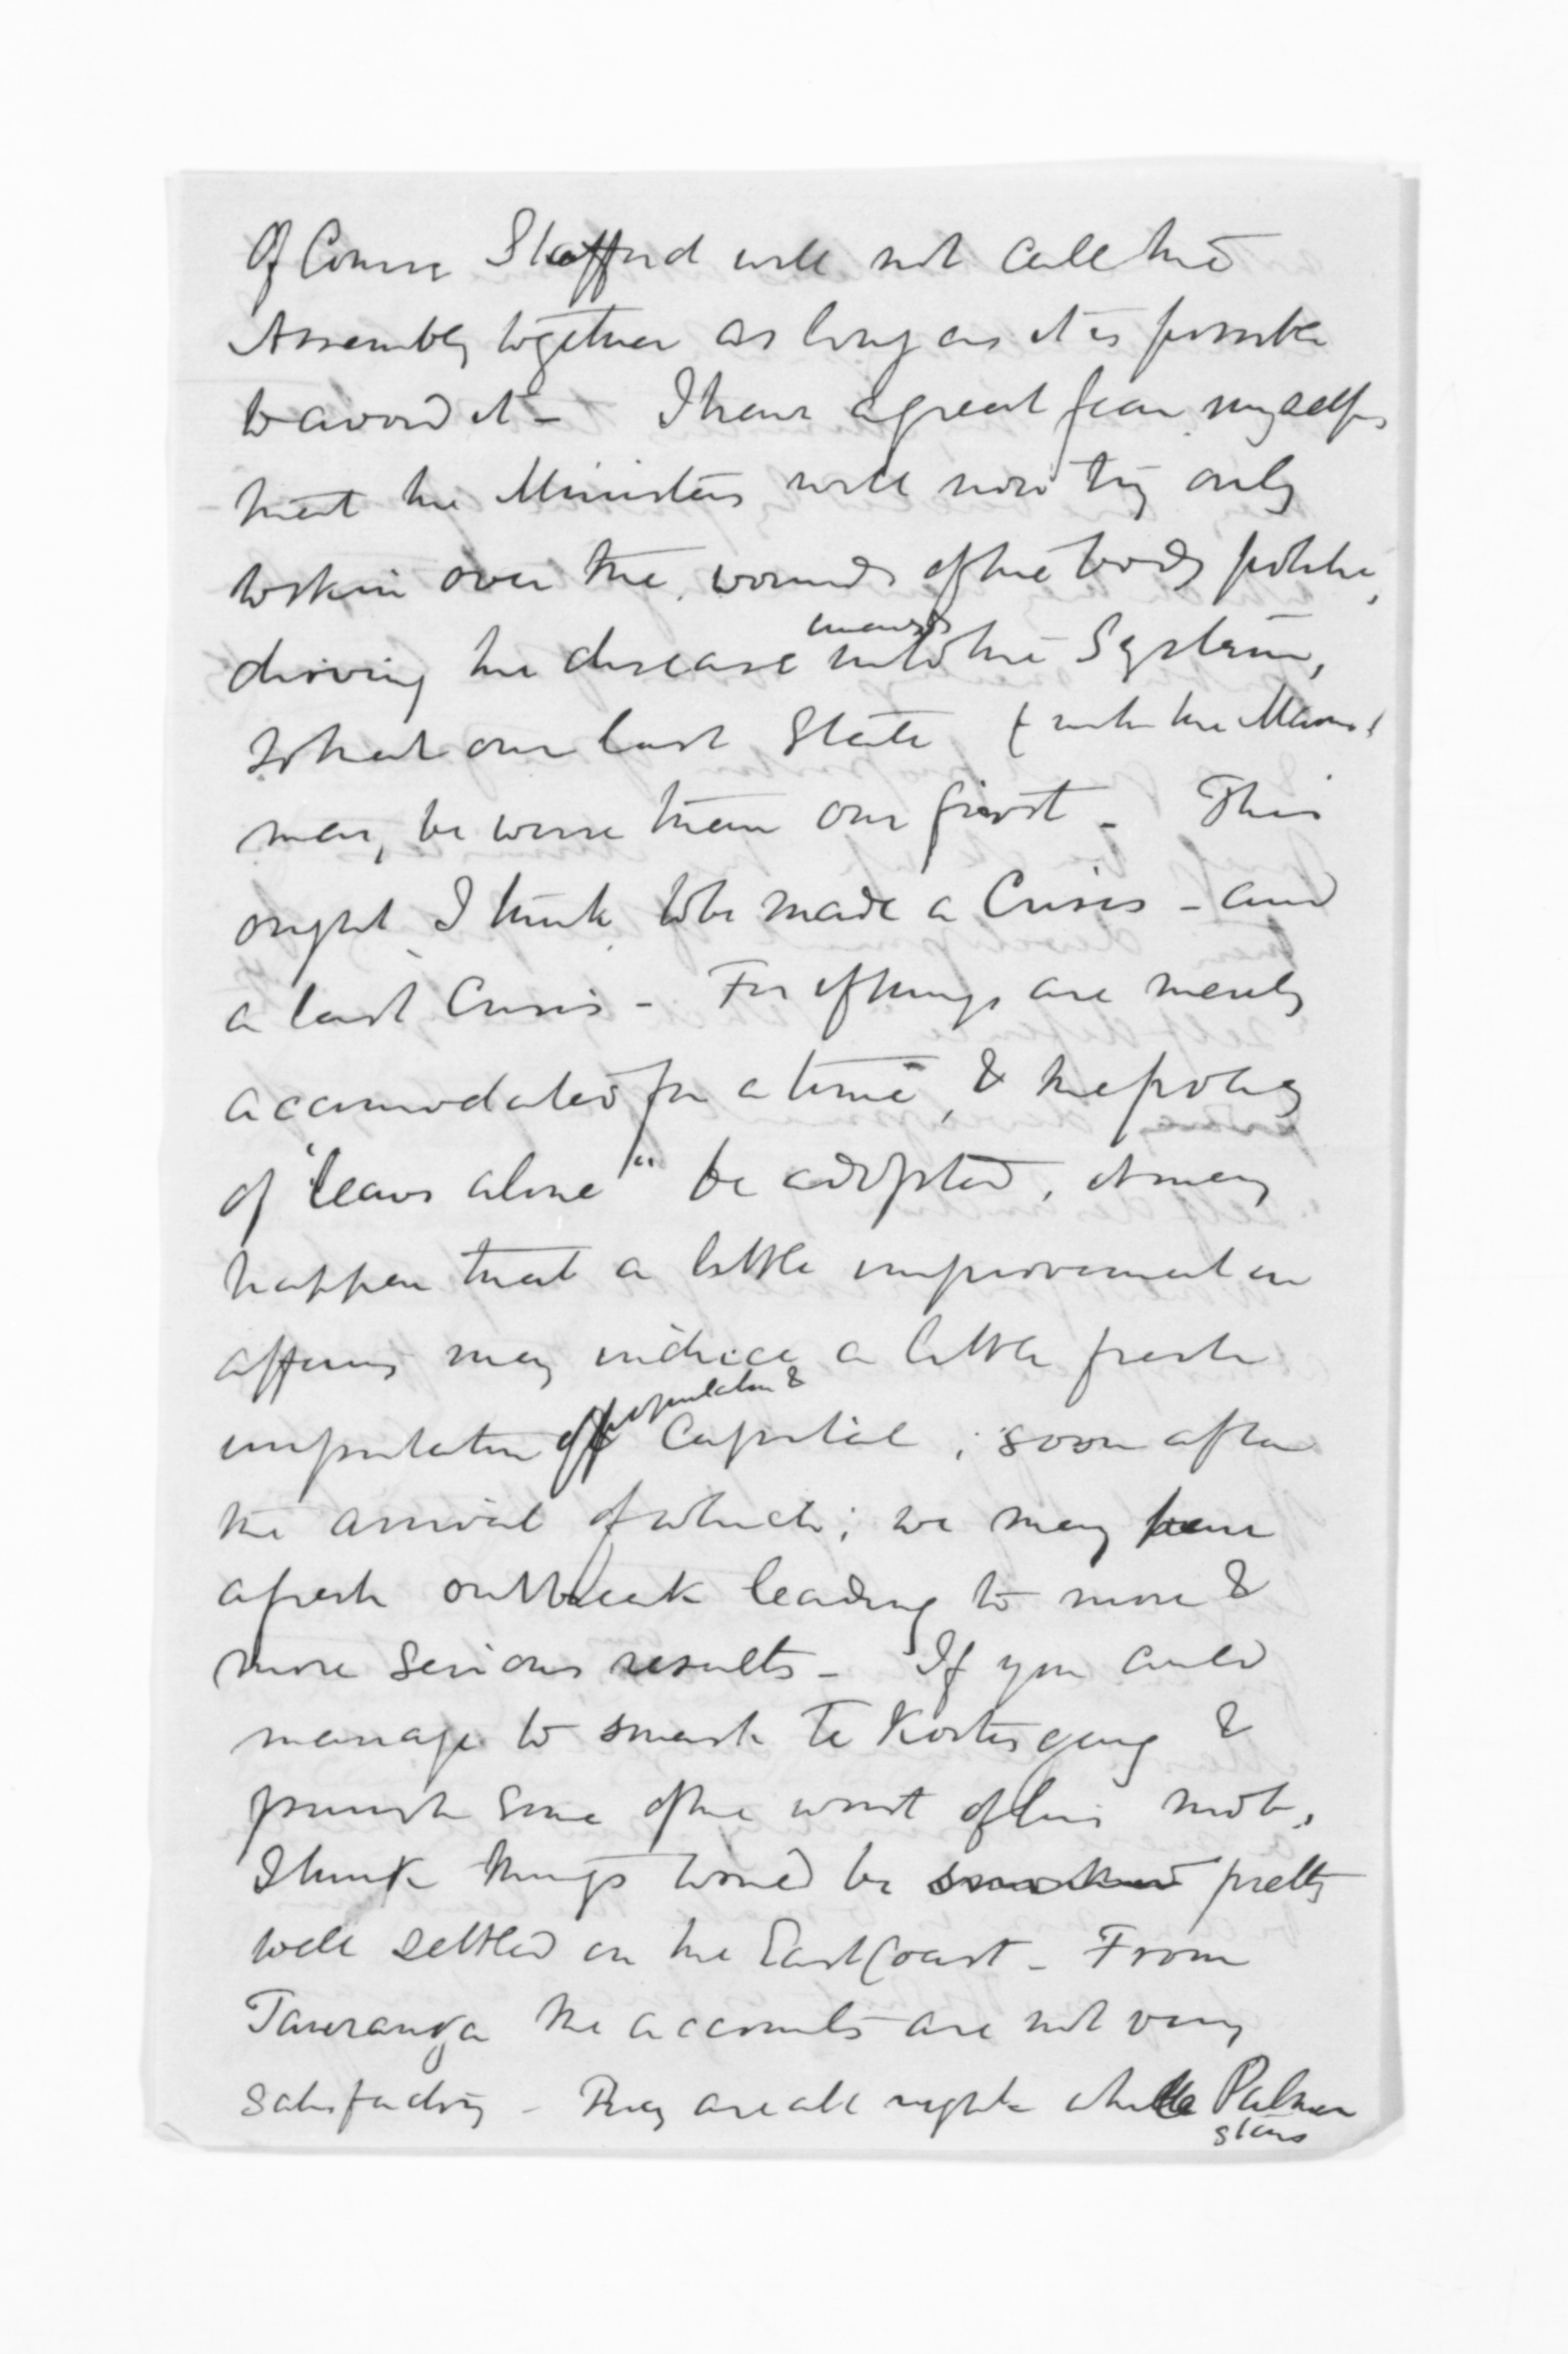 Of Course Stafford will not call the
Assembly together as long as it is possible
to avoid it - I have a great fear myself,
that the Ministers will now try only
to skin over the wounds of the body politic,
driving the disease inwards into the System,
so that our last State (with the Maoris)
may, be worse than our first - This
ought I think to be made a Crisis - and
a last Crisis - For if things are merely
accomodated for a time, & the policy
of "leave alone" be adopted, it may
happen that a little improvement in
affairs may induce a little fresh
importation of population & Capital ; soon after
the arrival of which ; we may have
a fresh outbreak leading to more &
more serious results - If you could
manage to smash Te Kooti's gang &
punish some of the worst of his mob,
I think things would be pretty
well settled on the East Coast - From
Tauranga the accounts are not very
satisfactory - They are all right while Palmer
stays